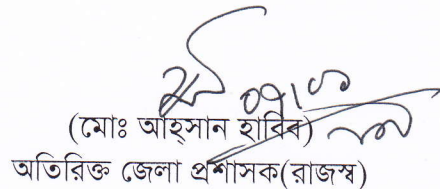 (মোঃ আহ্সান হাবিব)
অতিরিক্ত জেলা প্রশাসক(রাজস্ব)